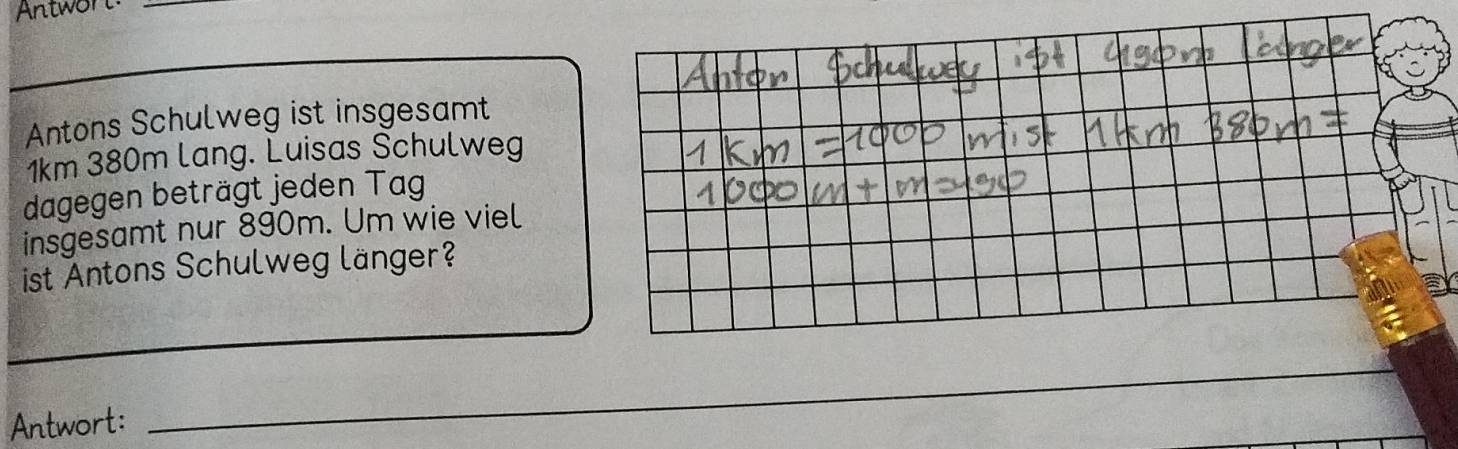 Antwort:
Antons Schulweg ist insgesamt
1km 380m lang. Luisas Schulweg
dagegen beträgt jeden Tag
insgesamt nur 890m. Um wie viel
ist Antons Schulweg länger?
Anton Schulweg ist 490m länger
1 km = 1000 m ist 1km 380m =
1000 m + m = 490
Antwort: